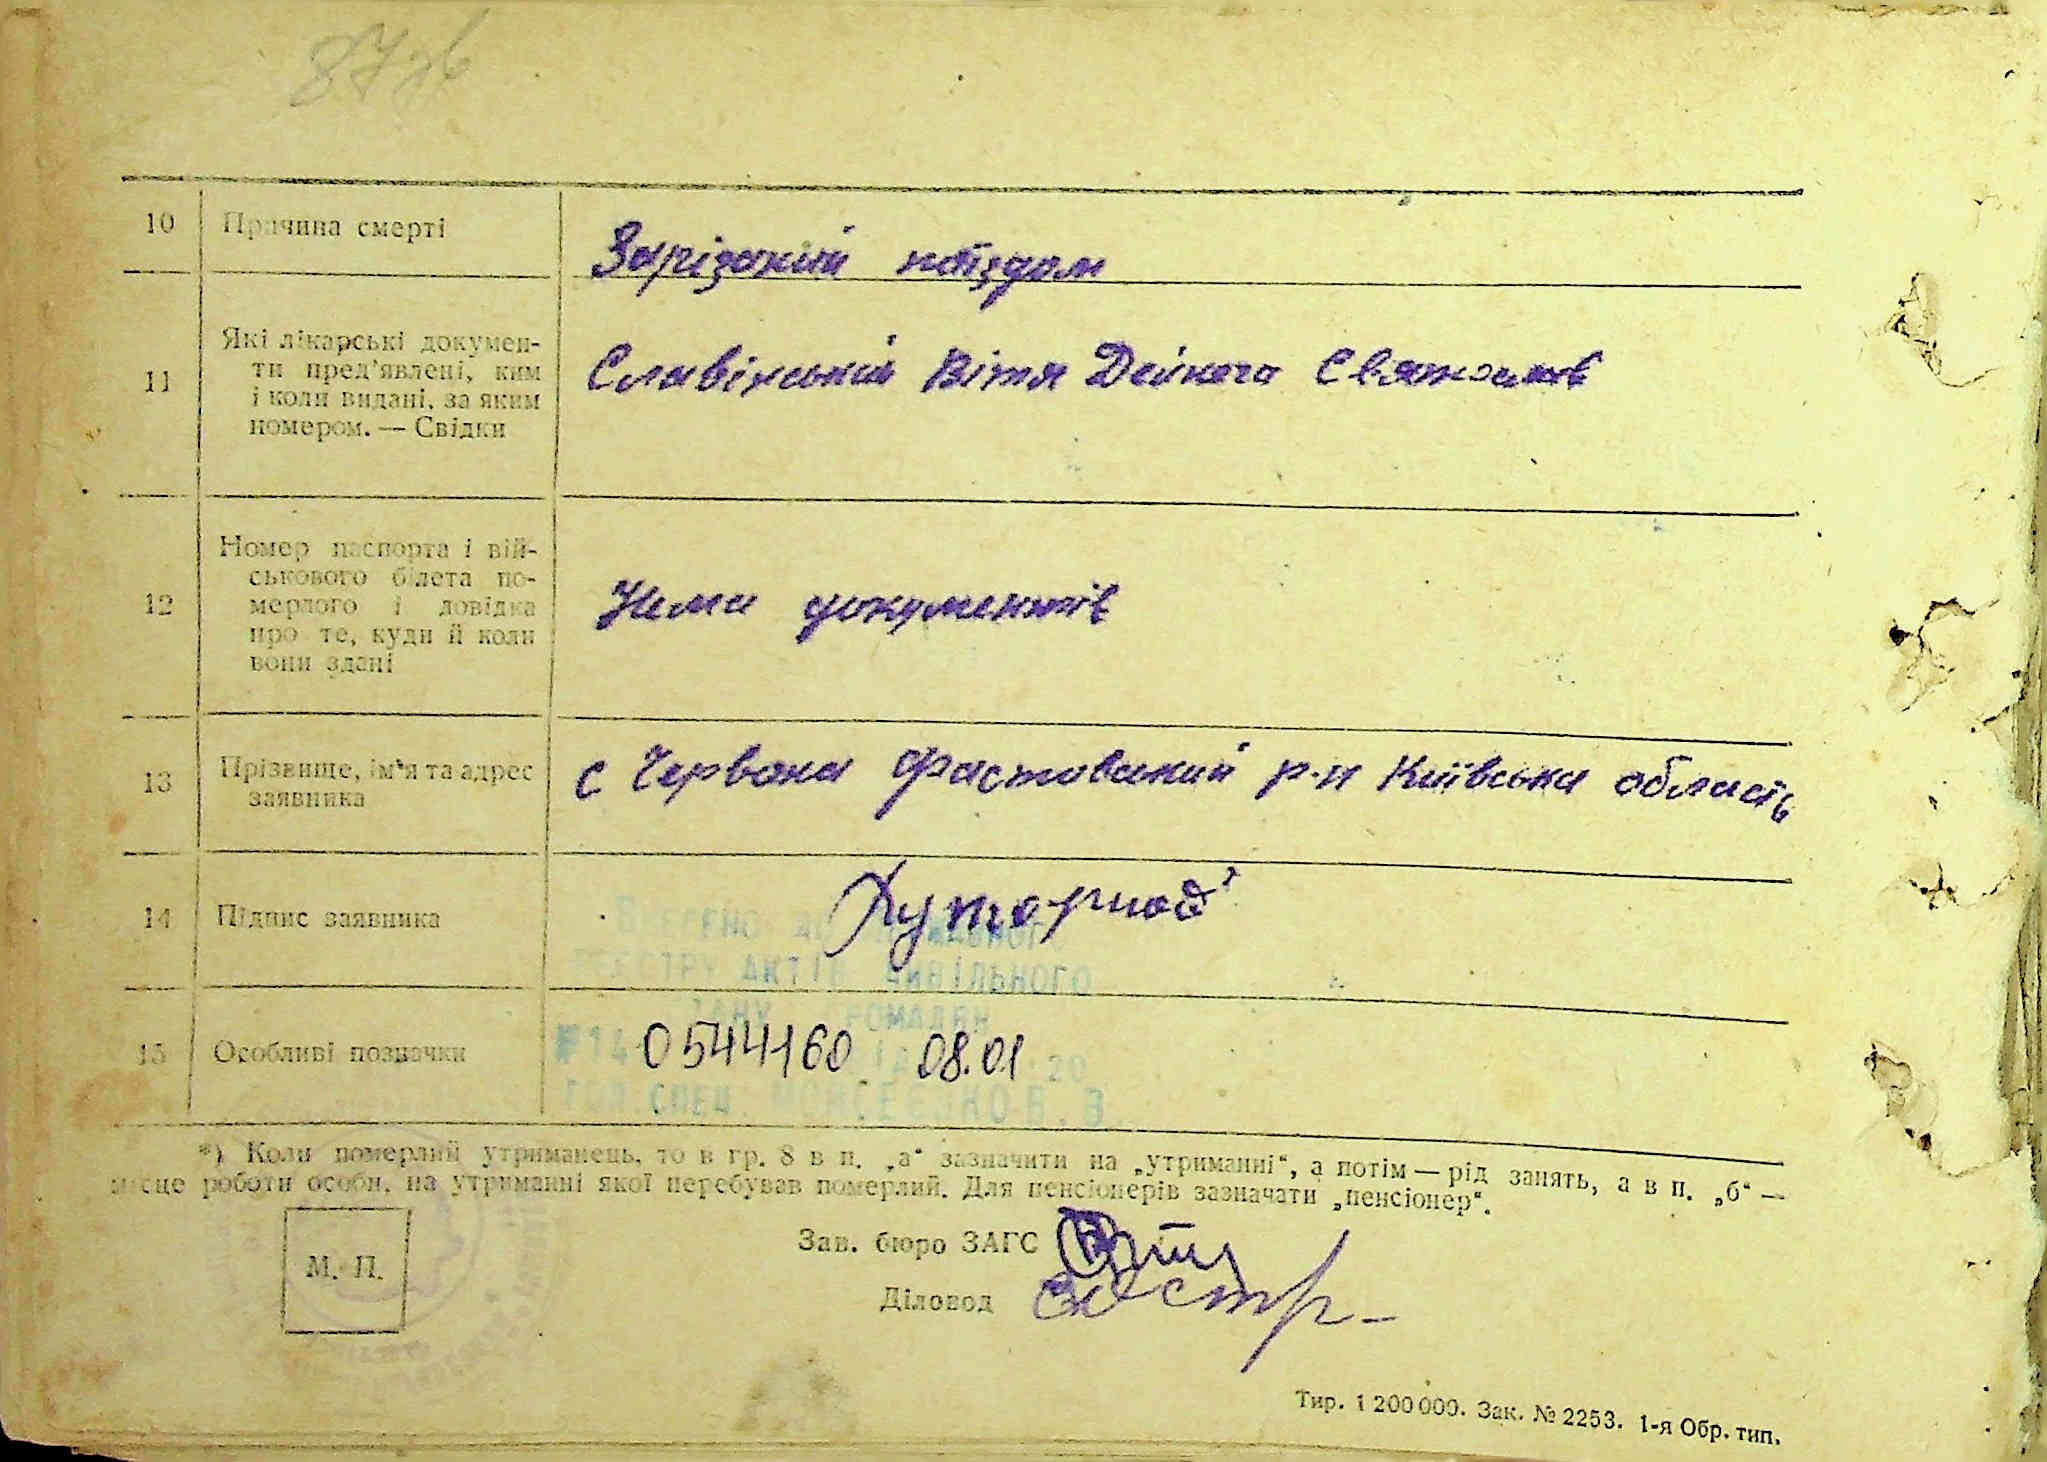 87 зв
10 Причина смерті
Зарізаний поїздом
11 Які лікарські докумен-
ти пред'явлені, ким
і коли видані, за яким
номером. — Свідки
Славінський Вітя Дейнега Святослав
12 Номер паспорта і вій-
ськового білета по-
мерлого і довідка
про те, куди й коли
вони здані
Нема документів
13 Прізвище, ім'я та адрес
заявника
с Червона Фастовський р-н Київська область
14 Підпис заявника
ДО
РЕЄСТРУ АКТІВ ЦИВІЛЬНОГО
ГРОМАДЯН
15 Особливі позначки
0544160 08.01
ГОЛ. СПЕЦ.
*) Коли померлий утриманець, то в гр. 8 в п. „а“ зазначити на „утриманні“, а потім — рід занять, а в п. „б“ —
місце роботи особи, на утриманні якої перебував померлий. Для пенсіонерів зазначати „пенсіонер“.
М. П.
Зав. бюро ЗАГС
Діловод
Тир. 1 200 000. Зак. № 2253. 1-я Обр. тип.